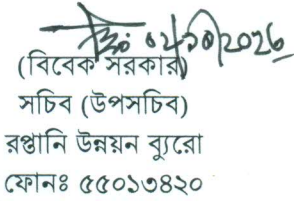 ০২/১০/২০২৬
(বিবেক সরকার)
সচিব (উপসচিব)
রপ্তানি উন্নয়ন ব্যুরো
ফোনঃ ৫৫০১৩৪২০